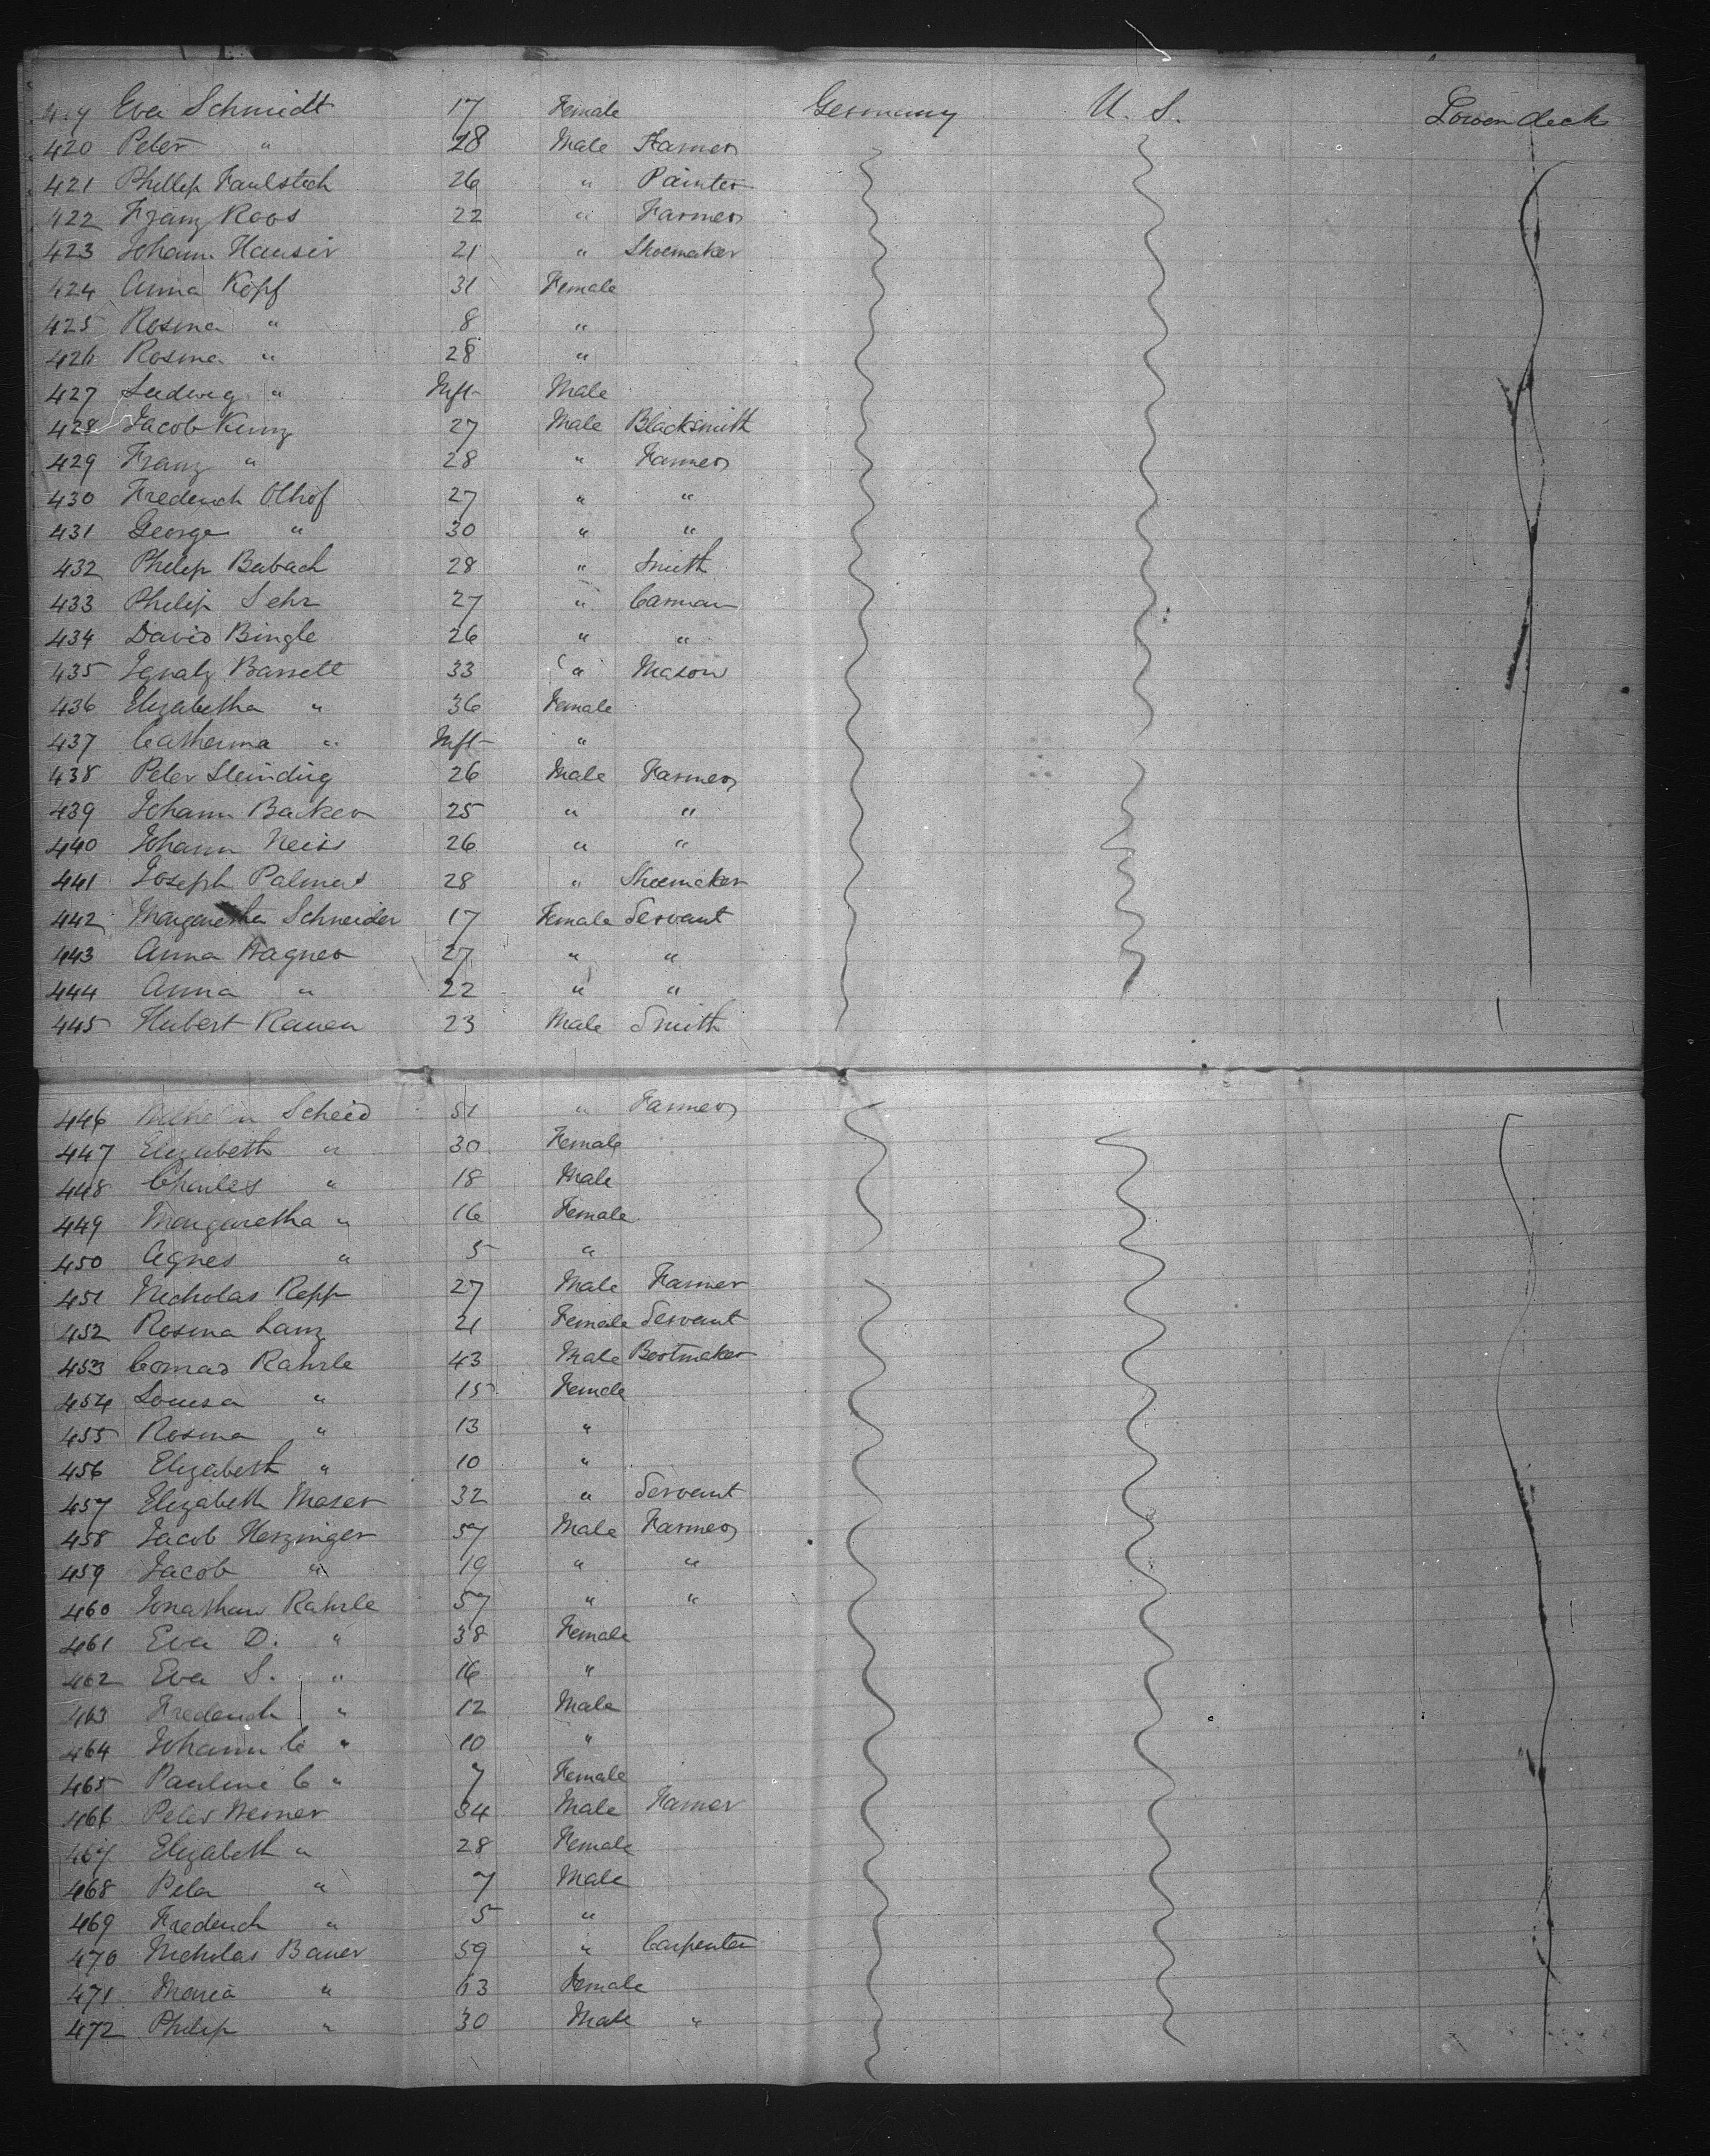 Eva Schmidt 17 Female Germany U. S. Lower deck
420 Peter " 28 Male Farmer
421 Phillip Faulstech 26 " Painter
422 Franz Roos 22 " Farmer
423 Johann Hauser 21 " Shoemaker
424 Anna Kopf 31 Female
425 Rosina " 8 "
426 Rosina " 28 "
427 Ludwig " Inft Male
428 Jacob Kunz 27 Male Blacksmith
429 Franz " 28 " Farmer
430 Frederich Olhof 27 " "
431 George " 30 " "
432 Philip Babach 28 " Smith
433 Philip Sehr 27 " Carman
434 David Bingle 26 " "
435 Ignatz Barrett 33 " Mason
436 Elizabetha " 36 Female
437 Catherina " Inft "
438 Peter 26 Male Farmer
439 Johann Backer 25 " "
440 Johann Neiss 26 " "
441 Joseph Palmer 28 " Shoemaker
442 Margaretha Schneider 17 Female Servant
443 Anna Wagner 27 " "
444 Anna " 22 " "
445 Hubert Rauen 23 Male Smith
446 Scheid 51 " Farmer
447 Elizabeth " 30 Female
448 Charles " 18 Male
449 Margaretha " 16 Female
450 Agnes " 5 "
451 Nicholas Repp 27 Male Farmer
452 Rosina Lanz 21 Female Servant
453 Conrad Rahrle 43 Male Bootmaker
454 Louisa " 15 Female
455 Rosina " 13 "
456 Elizabeth " 10 "
457 Elizabeth Maser 32 " Servant
458 Jacob Herzinger 57 Male Farmer
459 Jacob " 19 " "
460 Jonathan Rahrle 57 " "
461 Eva D. " 38 Female
462 Eva S. " 16 "
463 Frederich " 12 Male
464 Johann C " 10 "
465 Pauline C " 7 Female
466 Peter Werner 34 Male Farmer
467 Elizabeth " 28 Female
468 Peter " 7 Male
469 Frederich " 5 "
470 Nicholas Bauer 59 " Carpenter
471 Maria " Female
472 Philip " 30 Male "